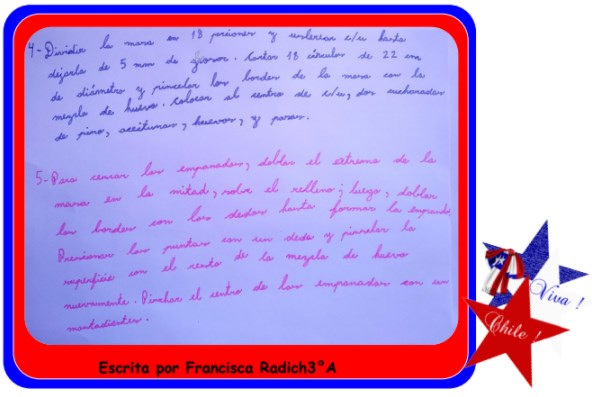 4- Dividir la masa en 18 porciones y uslerear c/u hasta
dejarla de 5 mm de grosor. Cortar 18 círculos de 22 cm
de diámetro y pincelar los bordes de la masa con la
mezcla de huevo. Colocar al centro de c/u, dos cucharadas
de pino, aceitunas, huevos, y pasas.
5- Para cerrar las empanadas, doblar el extremo de la
masa en la mitad, sobre el relleno; luego, doblar
los bordes con los dedos hasta formar la empanada.
Presionar las puntas con un dedo y pincelar la
superficie con el resto de la mezcla de huevo
nuevamente. Pinchar el centro de las empanadas con un
mondadientes.
Escrita por Francisca Radich3°A
Viva !
Chile !